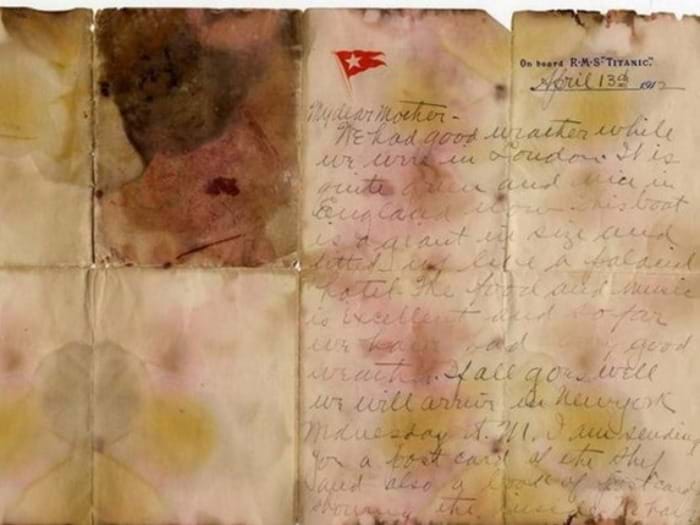 On board R·M·S "TITANIC".
April 13th 1912
My dear Mother -
We had good weather while
we were in London. It is
quite green and nice in
England now. This boat
is a giant in size and
fitted up like a palacial
hotel. The food and music
is excellent and so far
we have had very good
weather. If all goes well
we will arrive in New York
Wednesday A. M. I am sending
you a post card of the ship
and also a book of postcards
showing the inside